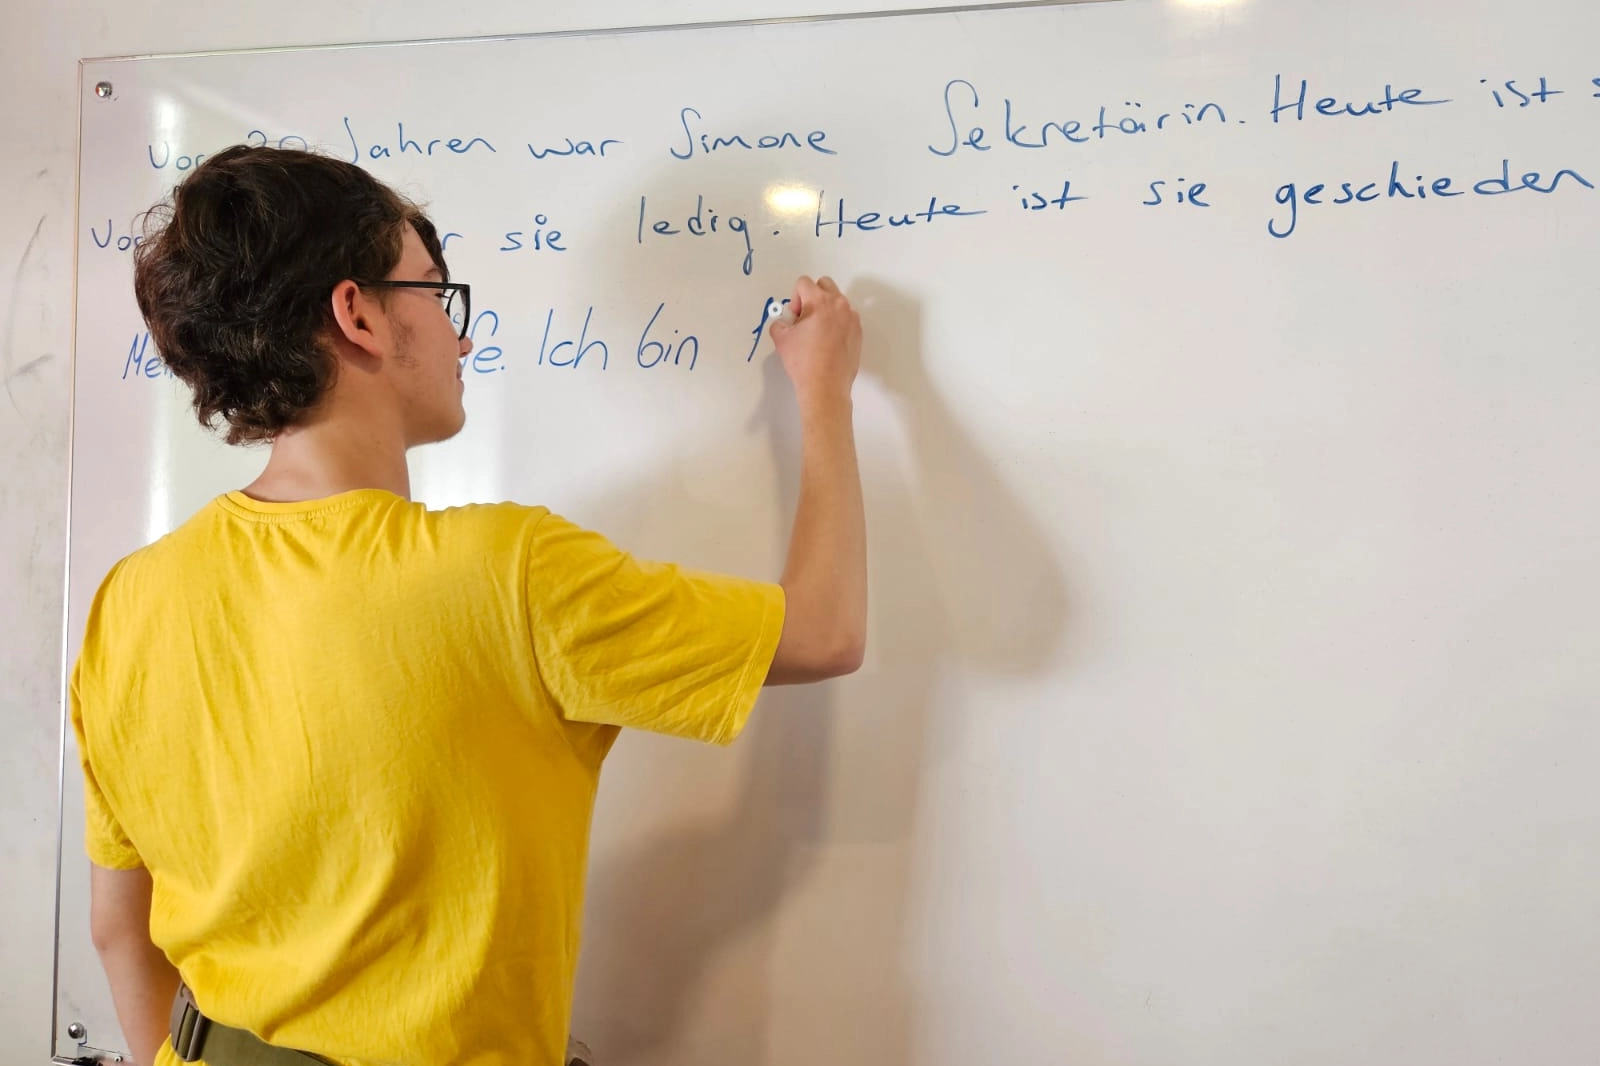 Vor 20 Jahren war Simone Sekretärin. Heute ist
sie ledig. Heute ist sie geschieden
Ich bin